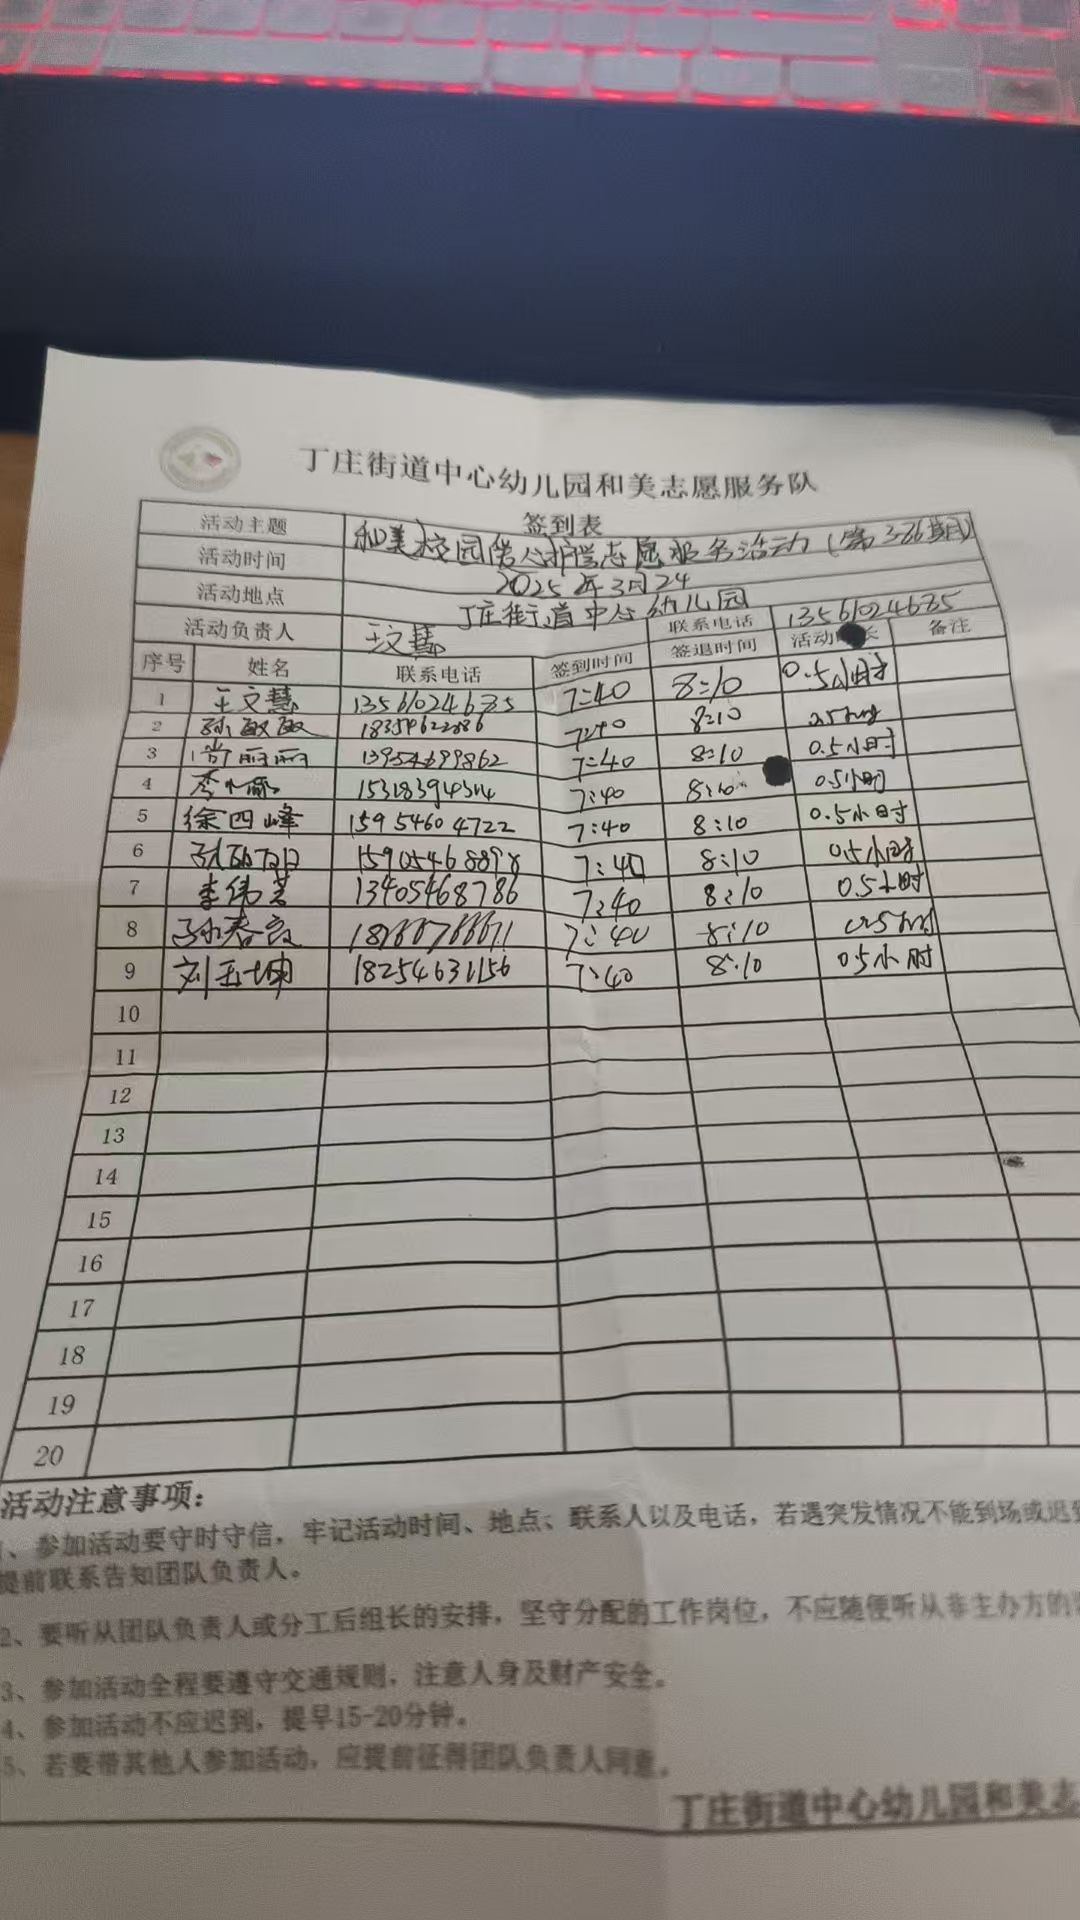 丁庄街道中心幼儿园和美志愿服务队
签到表
活动主题 和美校园 护学志愿服务活动(第386期)
活动时间 2025年3月24
活动地点 丁庄街道中心幼儿园
活动负责人 王文慧 联系电话 13561024635
序号 姓名 联系电话 签到时间 签退时间 活动 长 备注
1 王文慧 13561024635 7:40 8:10 0.5小时
2 孙敏敏 7:40 8:10 0.5小时
3 尚丽丽 13954699862 7:40 8:10 0.5小时
4 李 7:40 8:10 0.5小时
5 徐四峰 15954604722 7:40 8:10 0.5小时
6 15905468898 7:40 8:10 0.5小时
7 李伟 13405468786 7:40 8:10 0.5小时
8 孙春 7:40 8:10 0.5小时
9 刘玉坤 18254631156 7:40 8:10 0.5小时
10
11
12
13
14
15
16
17
18
19
20
活动注意事项:
1、参加活动要守时守信,牢记活动时间、地点、联系人以及电话,若遇突发情况不能到场或迟到
提前联系告知团队负责人。
2、要听从团队负责人或分工后组长的安排,坚守分配的工作岗位,不应随便听从非主办方的
3、参加活动全程要遵守交通规则,注意人身及财产安全。
4、参加活动不应迟到,提早15-20分钟。
5、若要带其他人参加活动,应提前征得团队负责人同意。
丁庄街道中心幼儿园和美志